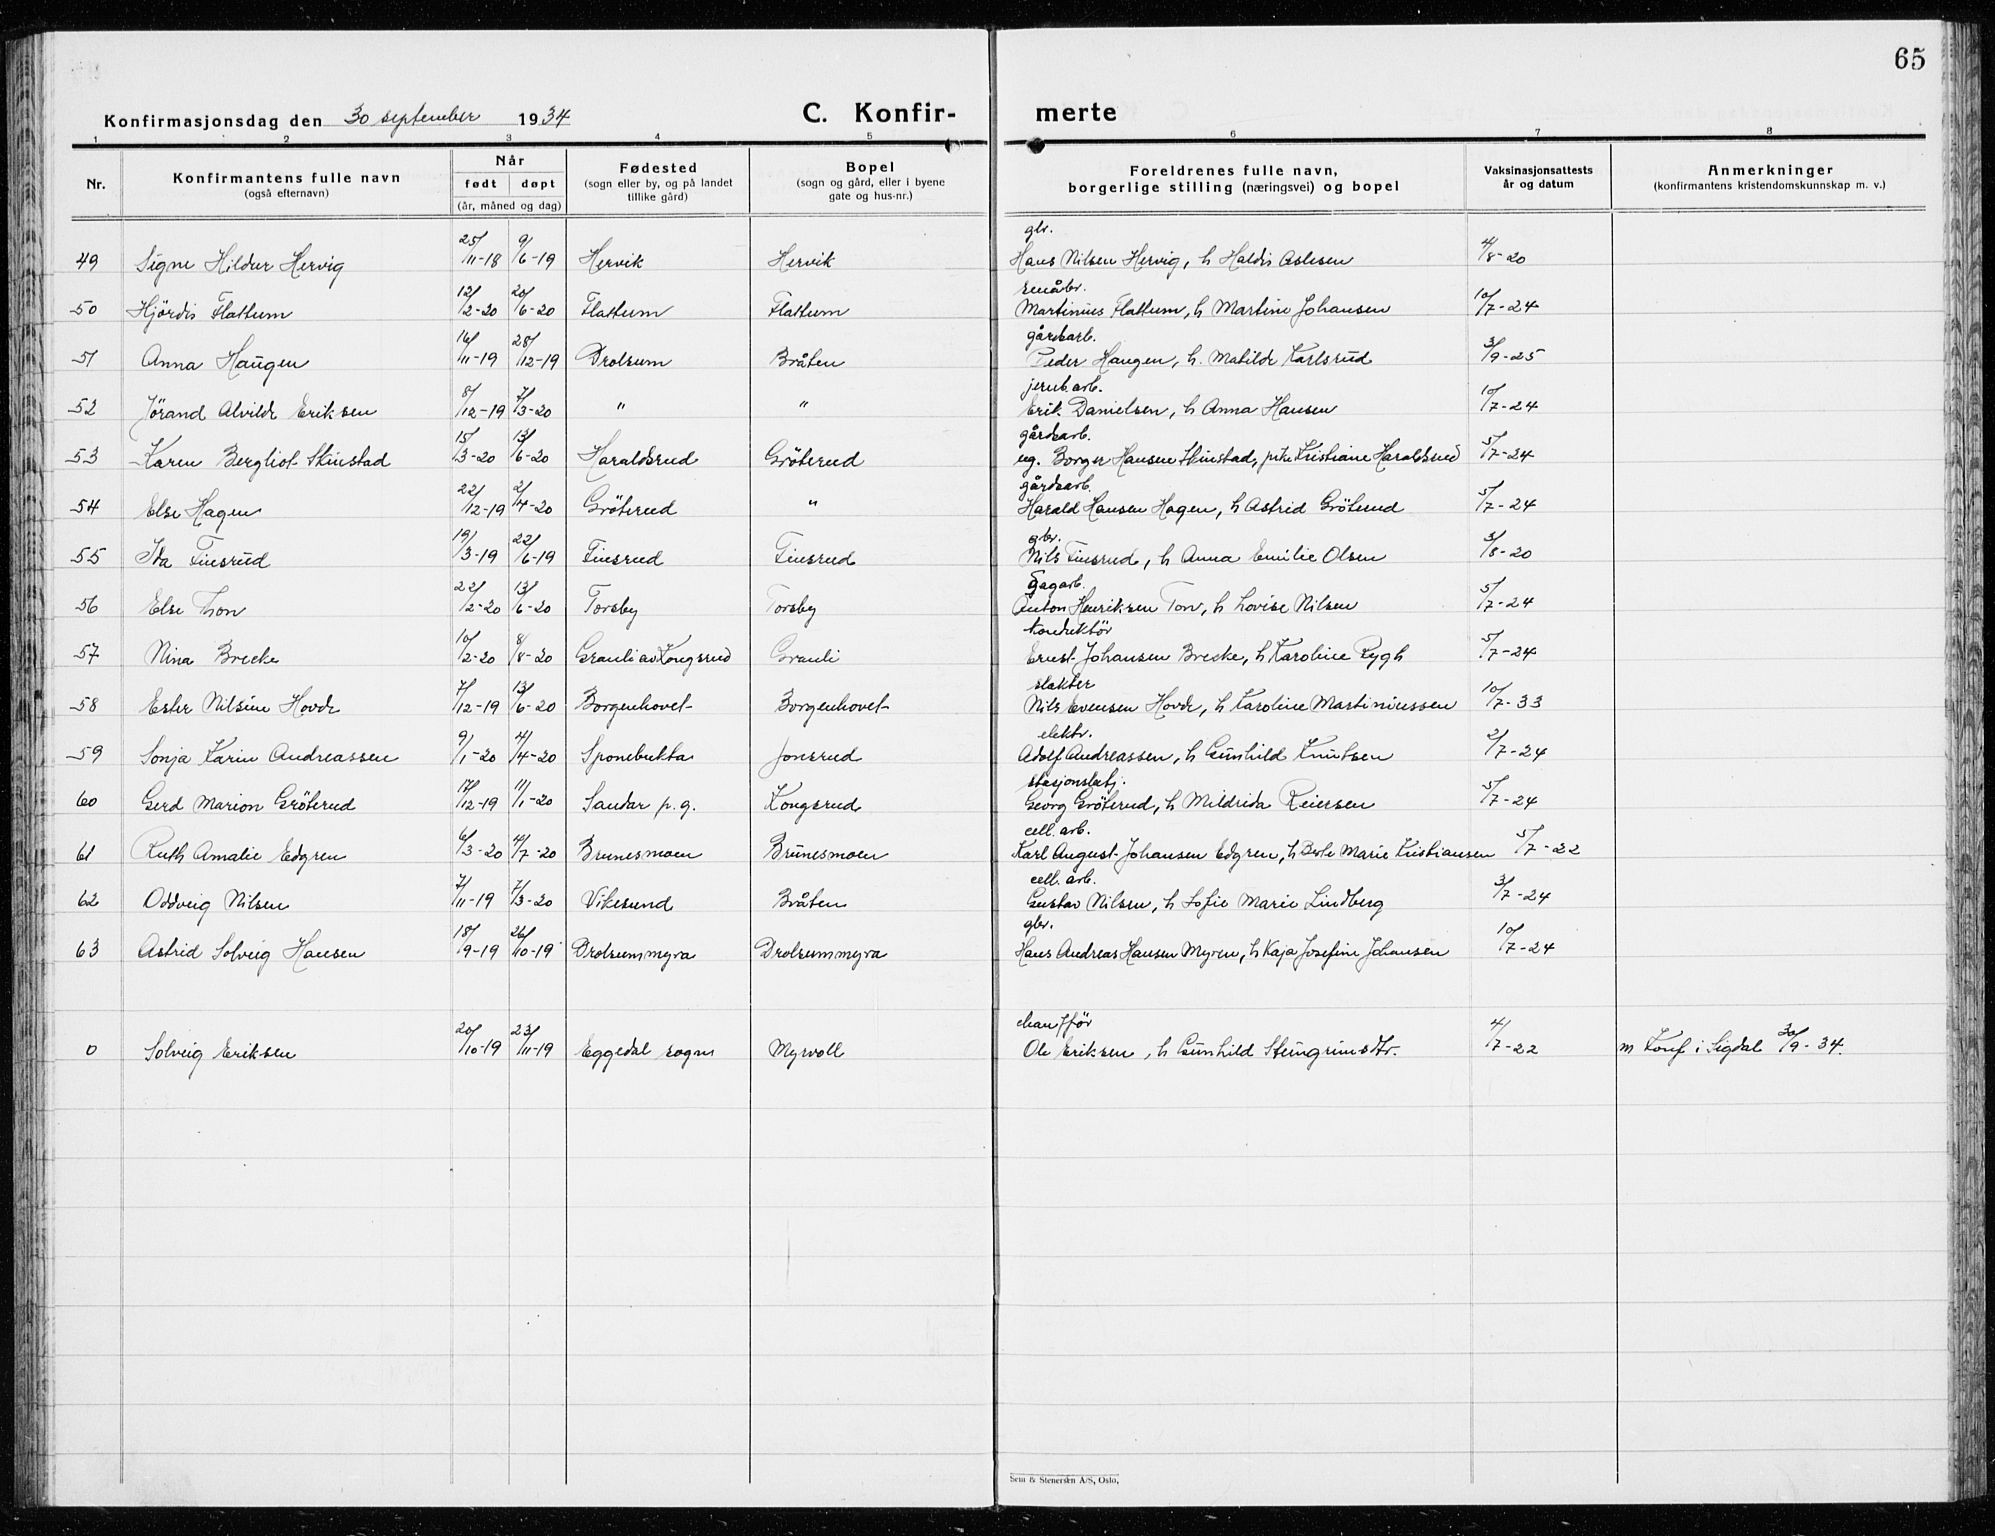 65
Konfirmasjonsdag den 30 september 1934
C. Konfir-
merte
1 2 3 4 5 6 7 8
Nr.
Konfirmantens fulle navn
(også efternavn)
Når
født døpt
(år, måned og dag)
Fødested
(sogn eller by, og på landet
tillike gård)
Bopel
(sogn og gård, eller i byene
gate og hus-nr.)
Foreldrenes fulle navn,
borgerlige stilling (næringsvei) og bopel
Vaksinasjonsattests
år og datum
Anmerkninger
(konfirmantens kristendomskunnskap m. v.)
gbr.
49 Signe Hildur Hervig 25/11-18 9/6-19 Hervik Hervik Hans Nilsen Hervig, h Haldis Aslesen 4/8-20
småbr.
50 Hjördis Flattum 12/2-20 20/6-20 Flattum Flattum Martinius Flattum, h Martine Johansen 10/7-24
gårdsarb.
51 Anna Haugen 16/11-19 28/12-19 Drolsum Bråten Peder Haugen, h. Matilde Karlsrud 3/9-25
jernb.arb.
52 Jörand Alvilde Eriksen 8/12-19 7/3-20 " " Erik Danielsen, h Anna Hansen 10/7-24
gårdsarb.
53 Karen Bergliot Skinstad 15/3-20 13/6-20 Haraldsrud Gröterud ug. Borger Hansen Skinstad, pike Kristiane Haraldsrud 5/7-24
gårdsarb.
54 Else Hagen 22/12-19 2/4-20 Gröterud " Harald Hansen Hagen, h Astrid Gröterud 5/7-24
gbr.
55 Ida Finsrud 19/3-19 22/6-19 Finsrud Finsrud Nils Finsrud, h Anna Emilie Olsen 3/8-20
Sagarb.
56 Else Thon 22/2-20 13/6-20 Torsby Torsby Anton Henriksen Ton, h Lovise Nilsen 5/7-24
konduktör
57 Nina Brecke 10/2-20 8/8-20 Granli av Kongsrud Granli Ernst Johansen Brecke, h Karoline Rygh 5/7-24
slakter
58 Ester Nilsine Hovde 7/12-19 13/6-20 Borgenhovet Borgenhovet Nils Evensen Hovde, h Karoline Martiniussen 10/7-33
elektr.
59 Sonja Karin Andreassen 9/1-20 4/4-20 Sponebukta Jonsrud Adolf Andreassen, h Gunhild Knutsen 2/7-24
stasjonsbetj.
60 Gerd Marion Gröterud 17/12-19 11/1-20 Sandar p.g. Kongsrud Georg Gröterud, h Mildrida Reiersen 5/7-24
cell. arb.
61 Ruth Amalie Edgren 6/3-20 4/7-20 Brunesmoen Brunesmoen Karl August Johansen Edgren, h Berte Marie Kristiansen 5/7-22
cell. arb.
62 Oddveig Nilsen 7/11-19 7/3-20 Vikesund Bråten Gustav Nilsen, h Sofie Marie Lindberg 3/7-24
gbr.
63 Astrid Solveig Hansen 18/9-19 26/10-19 Drolsummyra Drolsummyra Hans Andreas Hansen Myren, h Kaja Josefine Johansen 10/7-24
chaufför
0 Solveig Eriksen 20/10-19 23/11-19 Eggedal sogn Myrvoll Ole Eriksen, h Gunhild Steingrimsdtr. 4/7-22 m Konf i Sigdal 30/9-34.
Sem & Stenersen A/S, Oslo.